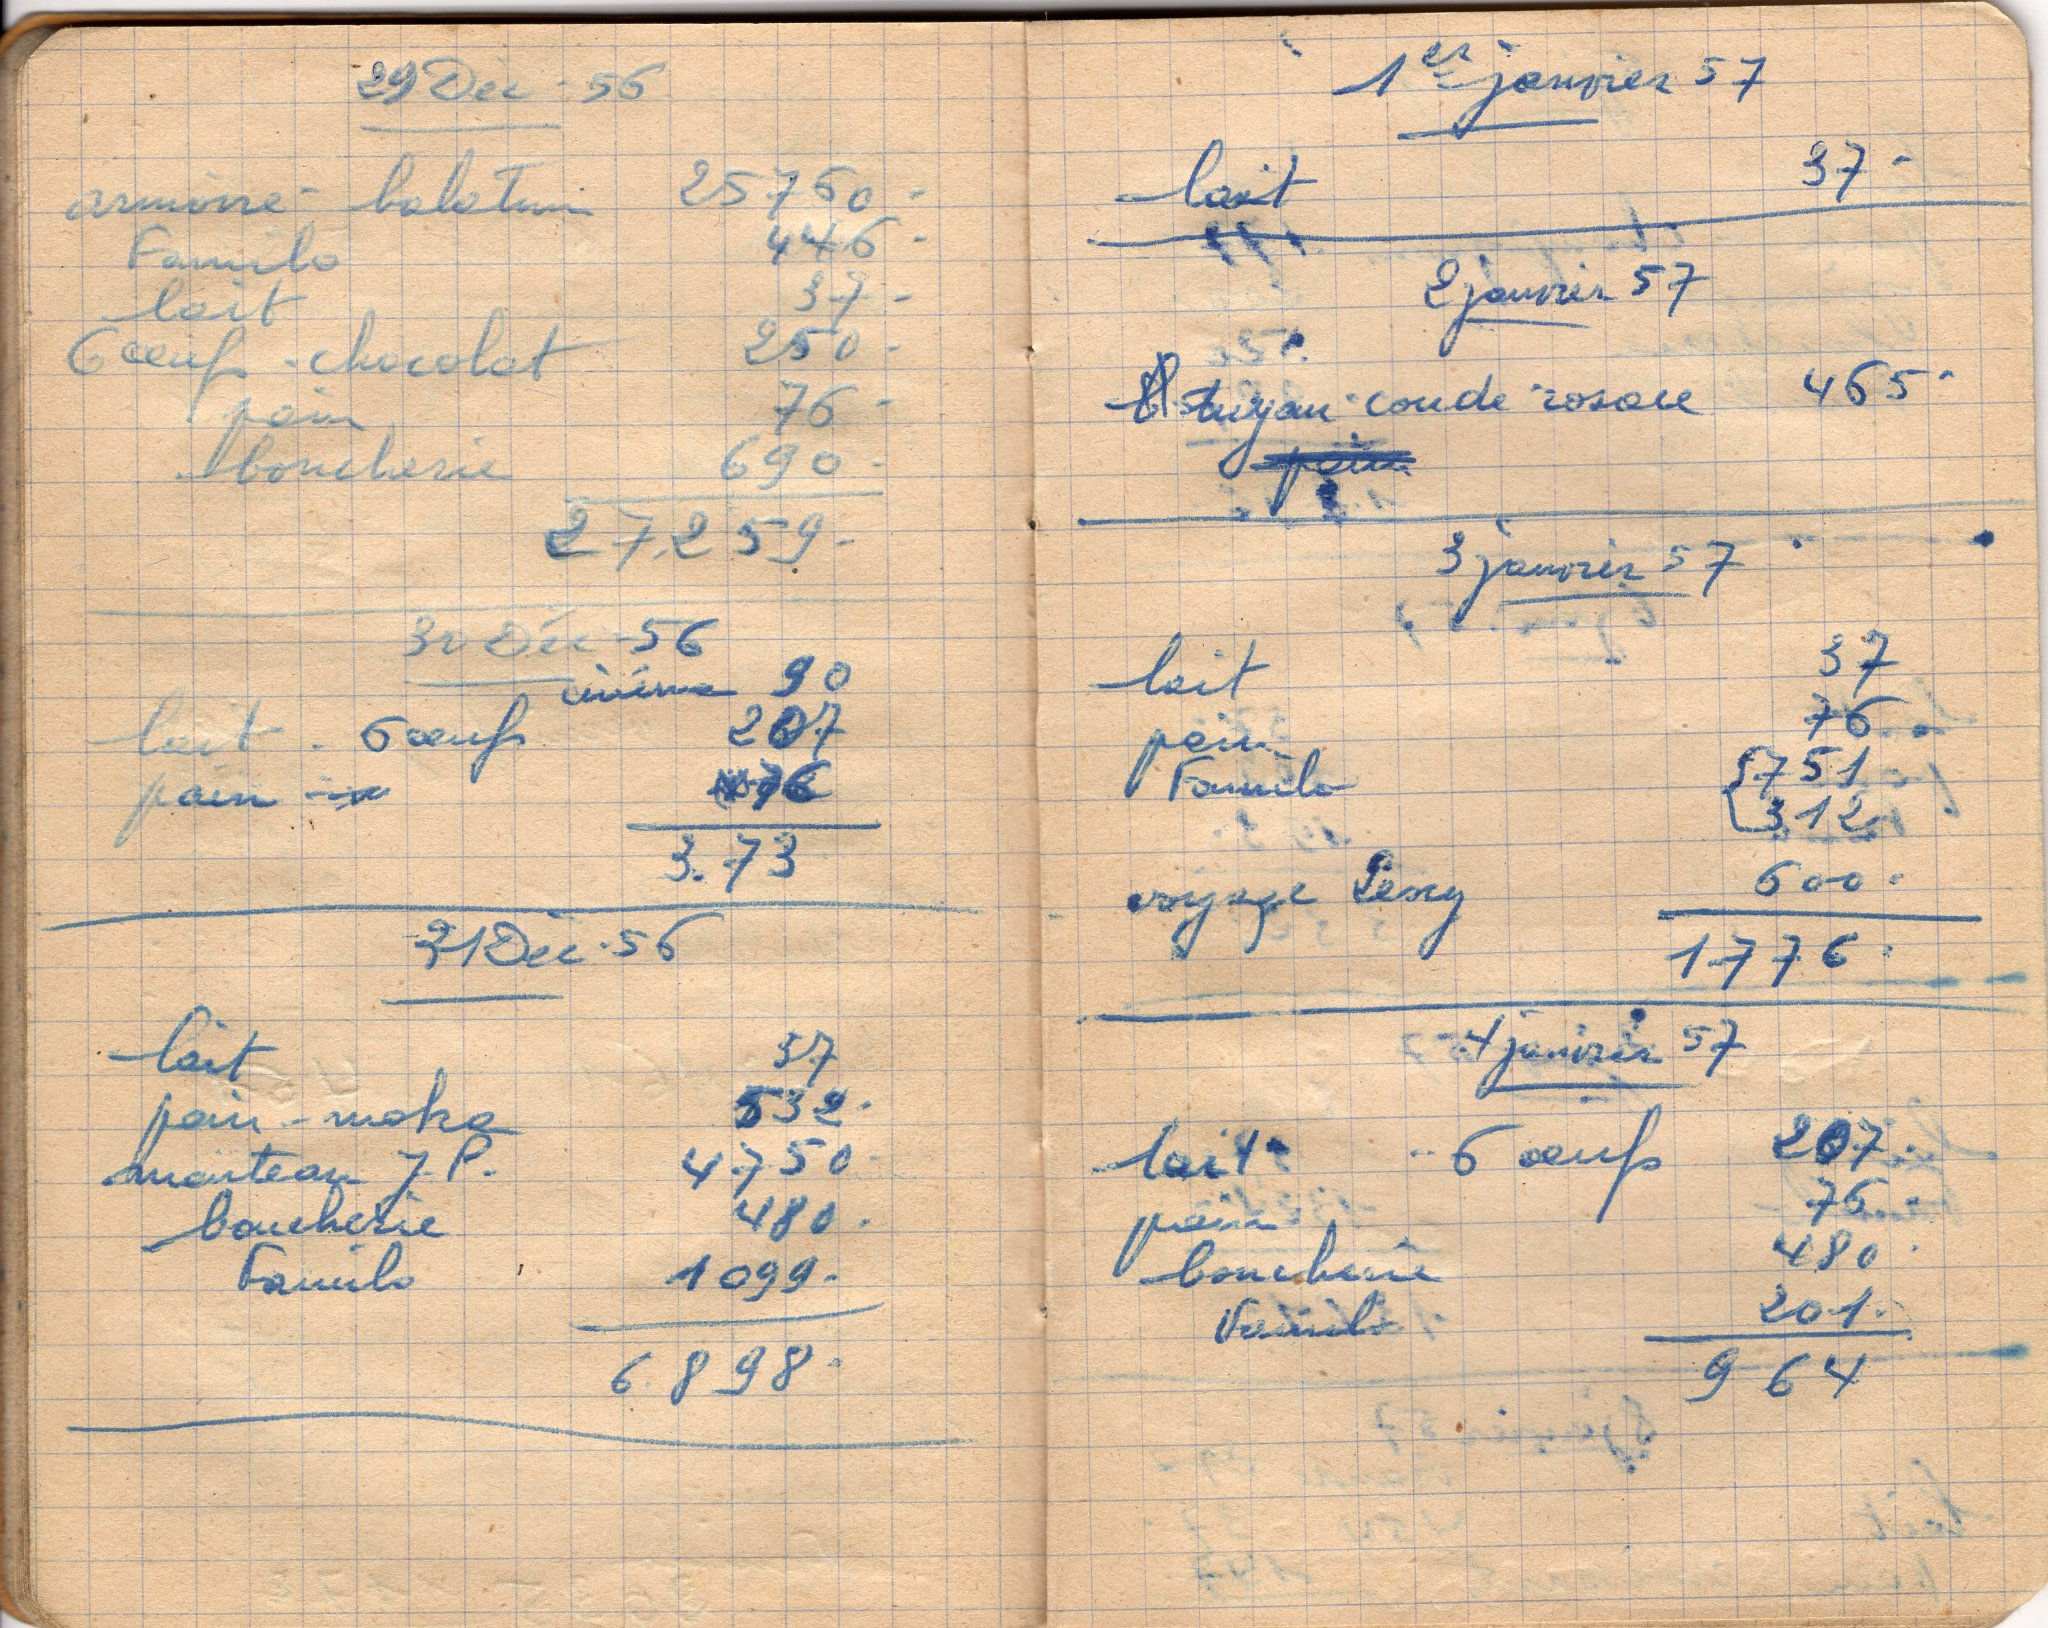 29 Dec - 56
armoire - balatum 25760 -
Familo 446 -
lait 37 -
6 œufs - chocolat 250 -
pain 76 -
boucherie 690 -
27.259 -
30 Dec - 56
cinéma 90
lait - 6 œufs 207
pain 76
3.73
31 Dec - 56
lait 37
pain - moka 532 -
manteau J. P. 4750 -
boucherie 480 -
Familo 1099 -
6.898 -
1er janvier 57
lait 37 -
2 janvier 57
tuyau - coude - rosace 465 -
pain
3 janvier 57
lait 37
pain 76
Familo { 751
312
voyage 600 -
1776 -
4 janvier 57
lait - 6 œufs 207 -
pain 76 -
boucherie 480 -
Familo 201 -
964